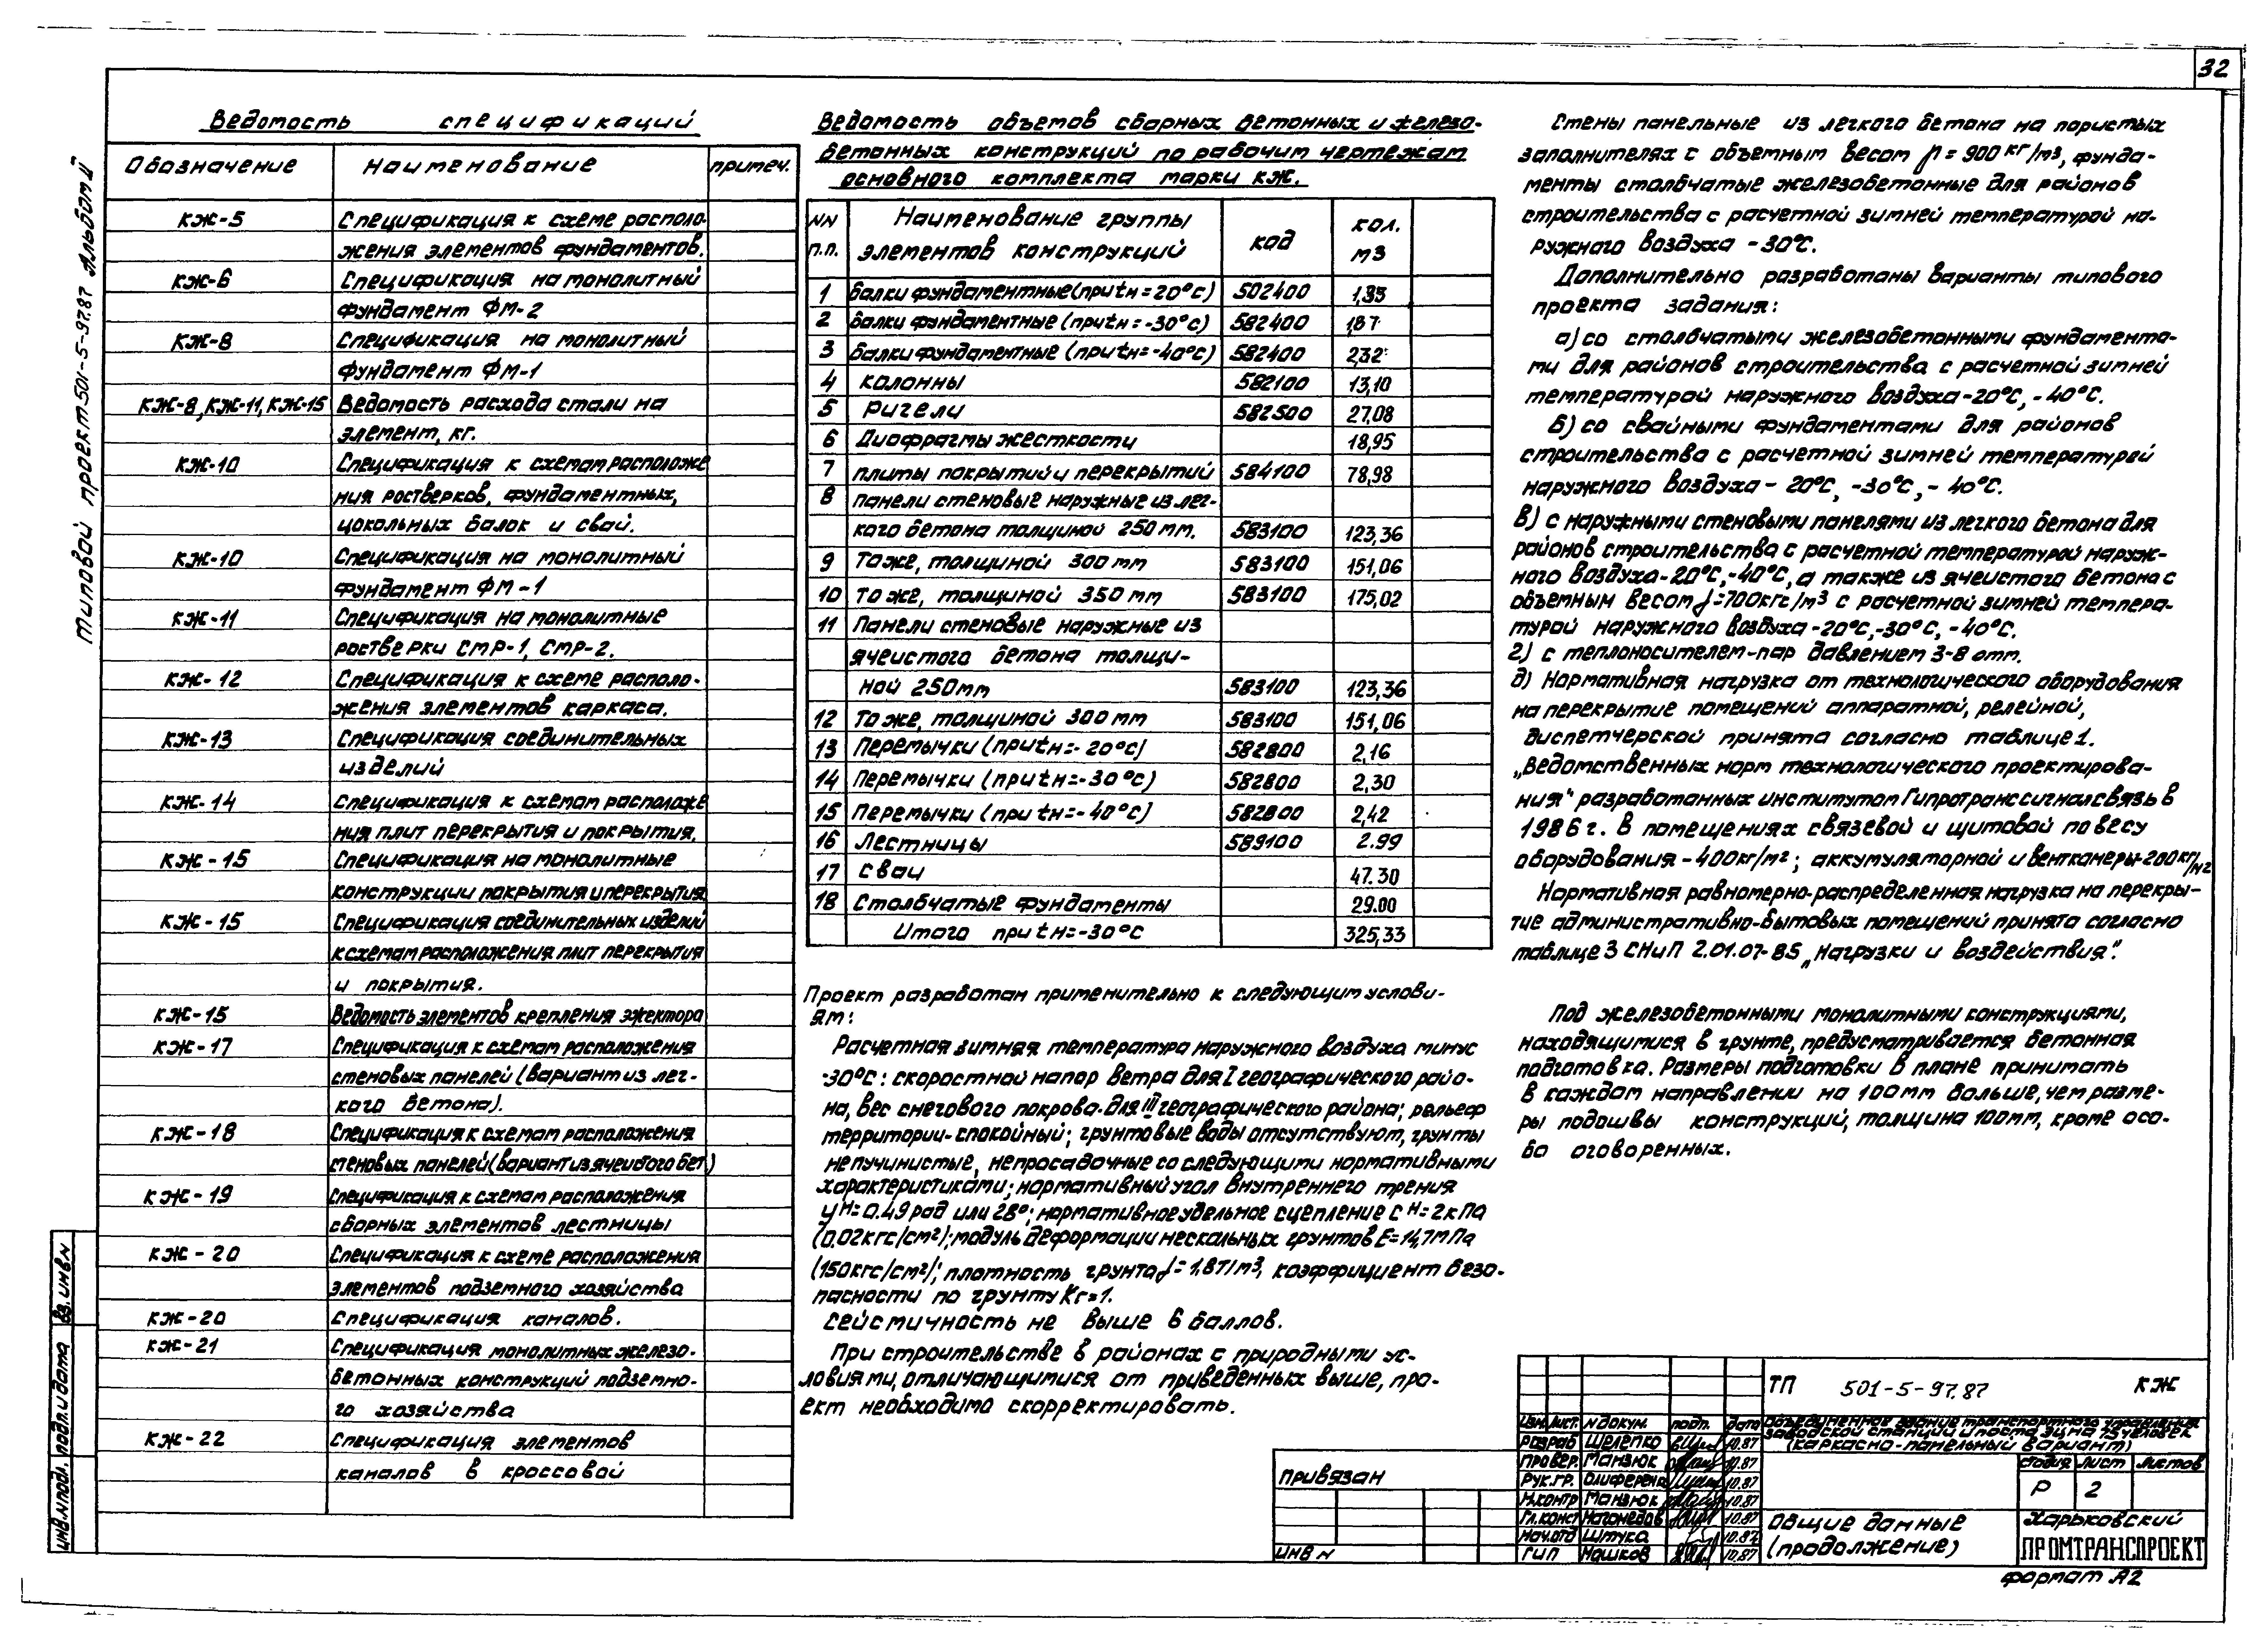 32
Типовой проект 501-5-97.87 Альбом II
Ведомость спецификаций
Обозначение Наименование примеч.
КЖ-5 Спецификация к схеме располо-
жения элементов фундаментов.
КЖ-6 Спецификация на монолитный
фундамент ФМ-2
КЖ-8 Спецификация на монолитный
фундамент ФМ-1
КЖ-8, КЖ-11, КЖ-15 Ведомость расхода стали на
элемент, кг.
КЖ-10 Спецификация к схемам расположе
ния ростверков, фундаментных,
цокольных балок и свай.
КЖ-10 Спецификация на монолитный
фундамент ФМ-1
КЖ-11 Спецификация на монолитные
ростверки СМР-1, СМР-2.
КЖ-12 Спецификация к схеме располо-
жения элементов каркаса.
КЖ-13 Спецификация соединительных
изделий
КЖ-14 Спецификация к схемам расположе
ния плит перекрытия и покрытия.
КЖ-15 Спецификация на монолитные
конструкции покрытия и перекрытия
КЖ-15 Спецификация соединительных изделий
к схемам расположения плит перекрытия
и покрытия.
КЖ-15 Ведомость элементов крепления эжектора
КЖ-17 Спецификация к схемам расположения
стеновых панелей (вариант из лег-
кого бетона).
КЖ-18 Спецификация к схемам расположения
стеновых панелей (вариант из ячеистого бет.)
КЖ-19 Спецификация к схемам расположения
сборных элементов лестницы
КЖ-20 Спецификация к схеме расположения
элементов подземного хозяйства
КЖ-20 Спецификация каналов.
КЖ-21 Спецификация монолитных железо-
бетонных конструкций подземно-
го хозяйства
КЖ-22 Спецификация элементов
каналов в кроссовой
Ведомость объемов сборных бетонных и железо-
бетонных конструкций по рабочим чертежам
основного комплекта марки КЖ.
NN п.п. Наименование группы элементов конструкций код кол. м3
1 Балки фундаментные (при tн=20°С) 502400 1,35
2 Балки фундаментные (при tн=-30°С) 582400 1,87
3 Балки фундаментные (при tн=-40°С) 582400 2,32
4 Колонны 582100 13,10
5 Ригели 582500 27,08
6 Диафрагмы жесткости 18,95
7 плиты покрытий и перекрытий 584100 78,98
8 панели стеновые наружные из лег-
кого бетона толщиной 250 мм. 583100 123,36
9 То же, толщиной 300 мм 583100 151,06
10 То же, толщиной 350 мм 583100 175,02
11 Панели стеновые наружные из
ячеистого бетона толщи-
ной 250мм 583100 123,36
12 То же, толщиной 300 мм 583100 151,06
13 Перемычки (при tн=-20°С) 582800 2,16
14 Перемычки (при tн=-30°С) 582800 2,30
15 Перемычки (при tн=-40°С) 582800 2,42
16 Лестницы 589100 2.99
17 Сваи 47.30
18 Столбчатые фундаменты 29.00
Итого при tн=-30°С 325,33
Проект разработан применительно к следующим услови-
ям:
Расчетная зимняя температура наружного воздуха минус
-30°С: скоростной напор ветра для I географического райо-
на, вес снегового покрова для III географического района; рельеф
территории-спокойный; грунтовые воды отсутствуют, грунты
непучинистые, непросадочные со следующими нормативными
характеристиками; нормативный угол внутреннего трения
φн=0.49 рад или 28°; нормативное удельное сцепление Сн=2кПа
(0.02кгс/см²); модуль деформации нескальных грунтов Е=14,7мПа
(150кгс/см²); плотность грунта γ=1,8т/м³, коэффициент безо-
пасности по грунту Кг=1.
Сейсмичность не выше 6 баллов.
При строительстве в районах с природными ус-
ловиями, отличающимися от приведенных выше, про-
ект необходимо скорректировать.
Стены панельные из легкого бетона на пористых
заполнителях с объемным весом ρ=900 кг/м³, фунда-
менты столбчатые железобетонные для районов
строительства с расчетной зимней температурой на-
ружного воздуха -30°С.
Дополнительно разработаны варианты типового
проекта задания:
а) со столбчатыми железобетонными фундамента-
ми для районов строительства с расчетной зимней
температурой наружного воздуха-20°С, -40°С.
б) со свайными фундаментами для районов
строительства с расчетной зимней температурой
наружного воздуха - 20°С, -30°С, - 40°С.
в) с наружными стеновыми панелями из легкого бетона для
районов строительства с расчетной температурой наруж-
ного воздуха-20°С,-40°С, а также из ячеистого бетона с
объемным весом γ=700кгс/м³ с расчетной зимней темпера-
турой наружного воздуха-20°С,-30°С, -40°С.
г) с теплоносителем-пар давлением 3-8 атм.
д) Нормативная нагрузка от технологического оборудования
на перекрытие помещений аппаратной, релейной,
диспетчерской принята согласно таблице 1.
„Ведомственных норм технологического проектирова-
ния" разработанных институтом Гипротранссигналсвязь в
1986г. В помещениях связевой и щитовой по весу
оборудования-400кг/м²; аккумуляторной и венткамеры-200кг/м2
Нормативная равномерно-распределенная нагрузка на перекры-
тие административно-бытовых помещений принята согласно
таблице 3 СНиП 2.01.07-85 „Нагрузки и воздействия".
Под железобетонными монолитными конструкциями,
находящимися в грунте, предусматривается бетонная
подготовка. Размеры подготовки в плане принимать
в каждом направлении на 100мм больше, чем разме-
ры подошвы конструкций, толщина 100мм, кроме осо-
бо оговоренных.
ТП 501-5-97.87 КЖ
Изм. Лист. N докум. подп. дата
Объединенное здание транспортного управления
заводской станции и поста ЭЦ на 75 человек
(каркасно-панельный вариант)
Разраб Шелепко 10.87
Провер. Манзюк 10.87
Рук.гр. Олиференко 10.87
Н.контр Манзюк 10.87
Гл.конст Магомедов 10.87
Нач.отд Штука 10.87
ГИП Машков 10.87
стадия лист листов
Р 2
Общие данные
(продолжение)
Харьковский
ПРОМТРАНСПРОЕКТ
Формат А2
Привязан
Инв N
Инв.N подл. Подп. и дата Вз. инв N